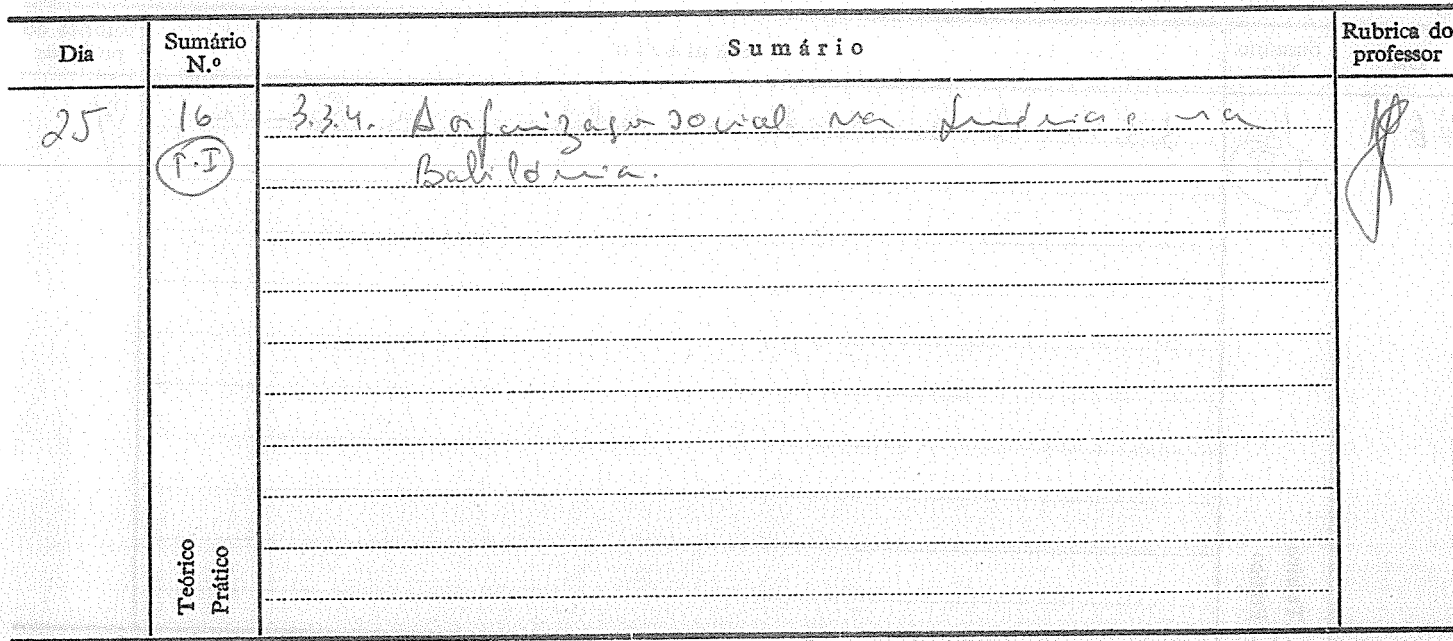 Dia
Sumário N.º
Sumário
Rubrica do professor
25
16
3.3.4. A organização social na Suméria e na
T.I
Babilónia.
Teórico
Prático